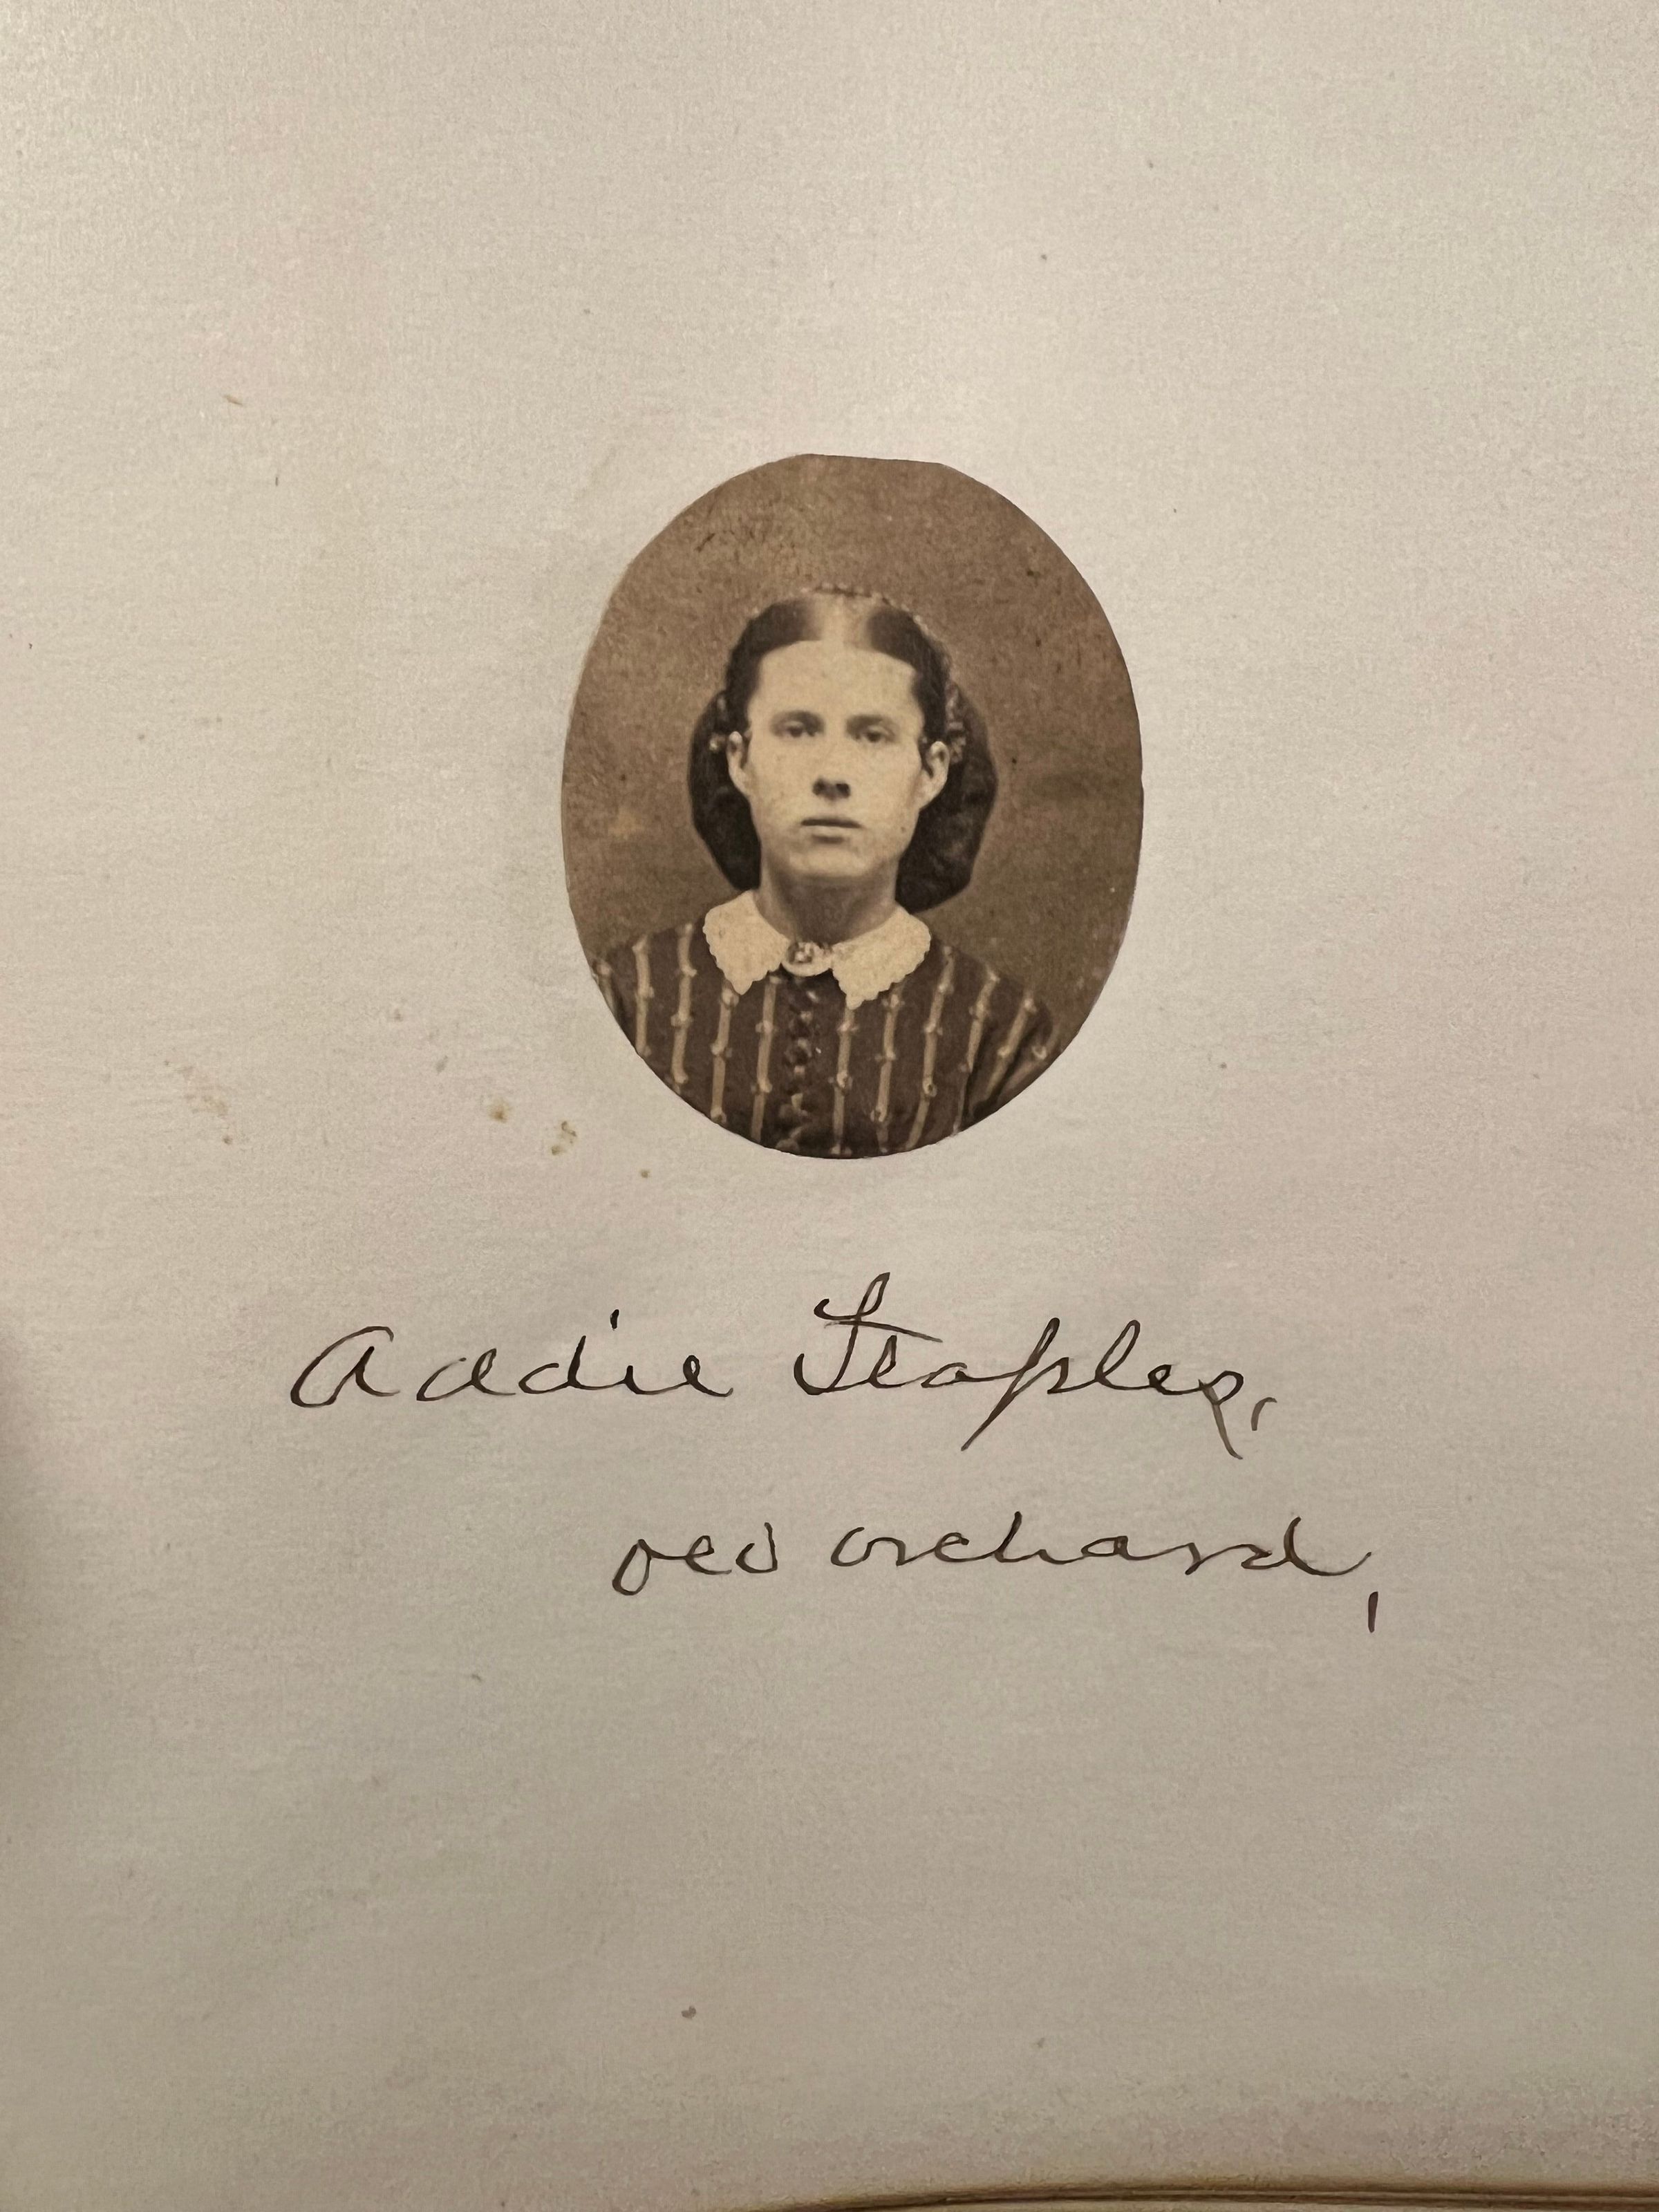 Addie Staples,
Old Orchard,